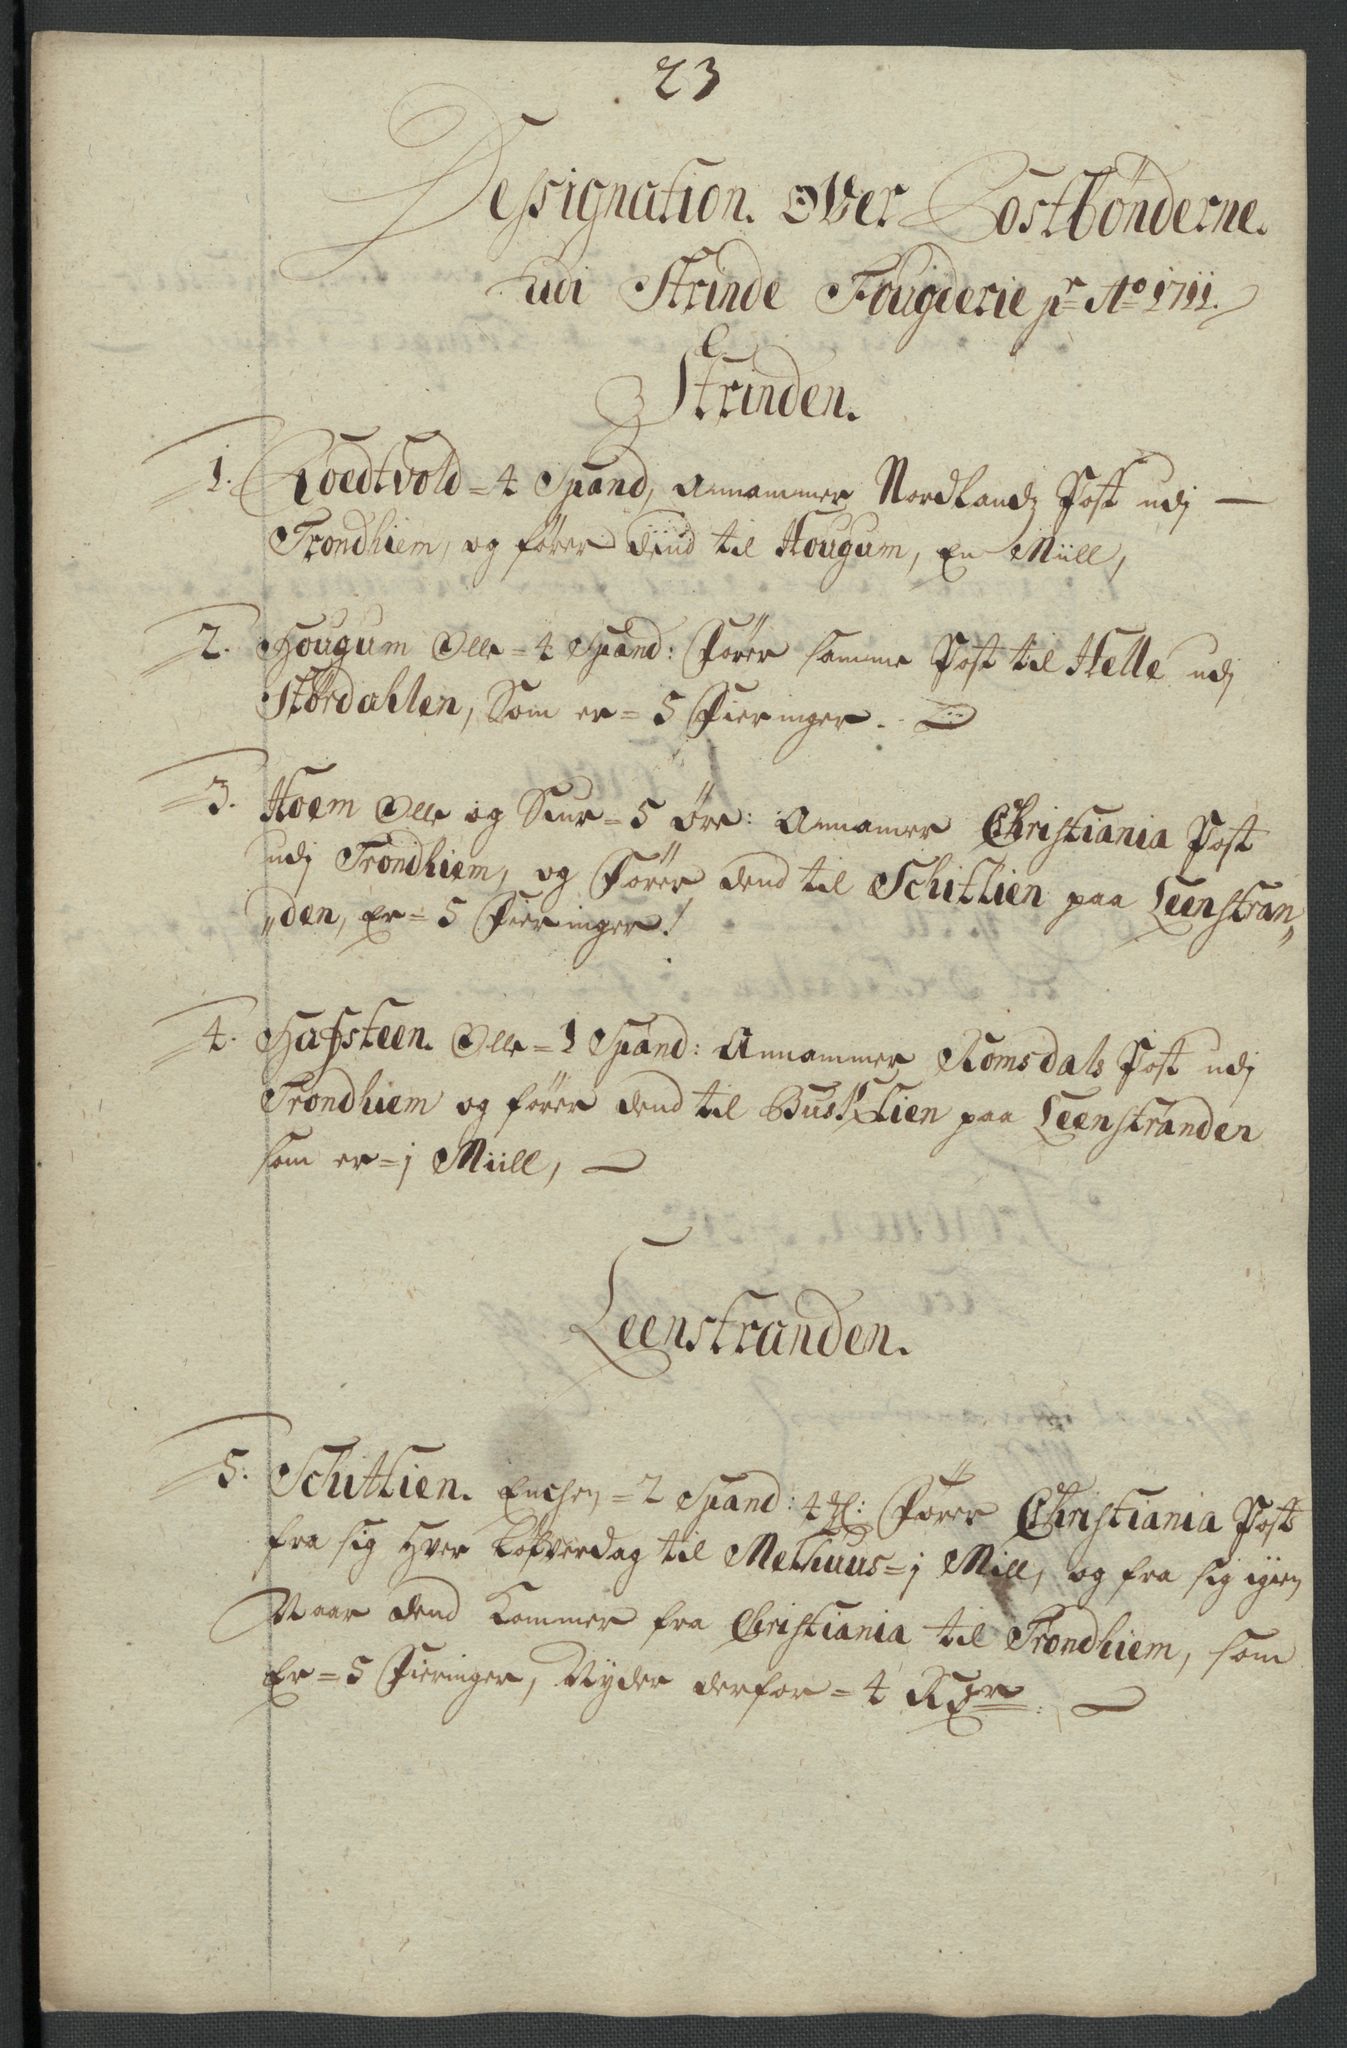 23
Dessignation. Over Postbønderne.
udi Strinde Fougderie pr Ao 1711.
Strinden.
1. Roedtvold = 4 Spand, annammer Nordlands Post udj —
Trondhiem, og fører dend til Hougum, En Miill,
2. Hougum Olle = 4 Spand: Fører samme Post til Helle udj
Størdahlen, Som er = 5 Fieringer.
3. Hoem Olle og Siur = 5 Øre: Annamer Christiania Post
udj Trondhiem, og Fører dend til Schitlien paa Leenstran„
„den, Er = 5 Fieringer!
4. Hafsteen. Olle = 1 Spand: Annammer Romsdals Post udj
Trondhiem og fører dend til Busklien paa Leenstranden
som er = j Miill, —
Leenstranden.
5. Schitlien. Enchen = 2 Spand: 4 : Fører Christiania Post
fra sig Hver Løfverdag til Melhuus = j Mill, og fra sig igien
Naar dend Kommer fra Christiania til Trondhiem, som
Er = 5 Fieringer, Nyder derfor = 4 Rdr